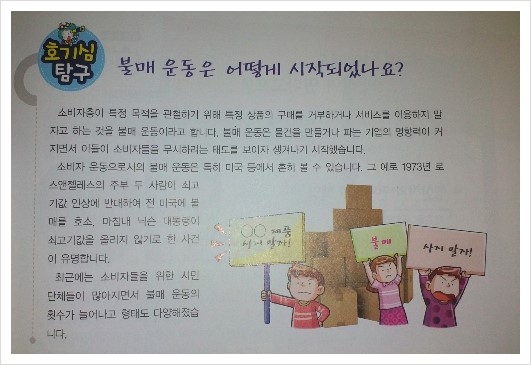 호기심
탐구
불매 운동은 어떻게 시작되었나요?
소비자층이 특정 목적을 관철하기 위해 특정 상품의 구매를 거부하거나 서비스를 이용하지 말
자고 하는 것을 불매 운동이라고 합니다. 불매 운동은 물건을 만들거나 파는 기업의 영향력이 커
지면서 이들이 소비자들을 무시하려는 태도를 보이자 생겨나기 시작했습니다.
소비자 운동으로서의 불매 운동은 특히 미국 등에서 흔히 볼 수 있습니다. 그 예로 1973년 로
스앤젤레스의 주부 두 사람이 쇠고
기값 인상에 반대하여 전 미국에 불
매를 호소, 마침내 닉슨 대통령이
쇠고기값을 올리지 않기로 한 사건
이 유명합니다.
최근에는 소비자들을 위한 시민
단체들이 많아지면서 불매 운동의
횟수가 늘어나고 형태도 다양해졌습
니다.
○○ 제품
사지 말자!
불매
사지 말자!